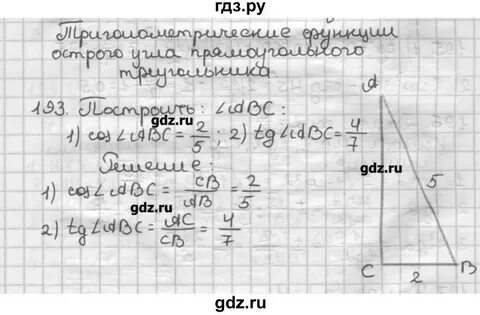 гдз.ру
Тригонометрические функции
острого угла прямоугольного
треугольника
gdz.ru
193. Построить: ∠ABC:
gdz.ru
1) cos∠ABC = 2/5; 2) tg∠ABC = 4/7
Решение:
gdz.ru
1) cos∠ABC = CB/AB = 2/5
2) tg∠ABC = AC/CB = 4/7
gdz.ru
A
5
C
2
B
gdz.ru